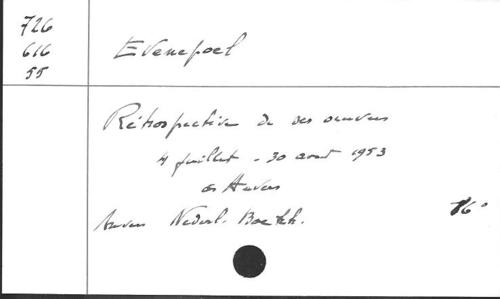 726
616
55
Evenepoel
Rétrospective de ses oeuvres
4 juillet - 30 aout 1953
à Anvers
Anvers Nederl. Boekh.
16°